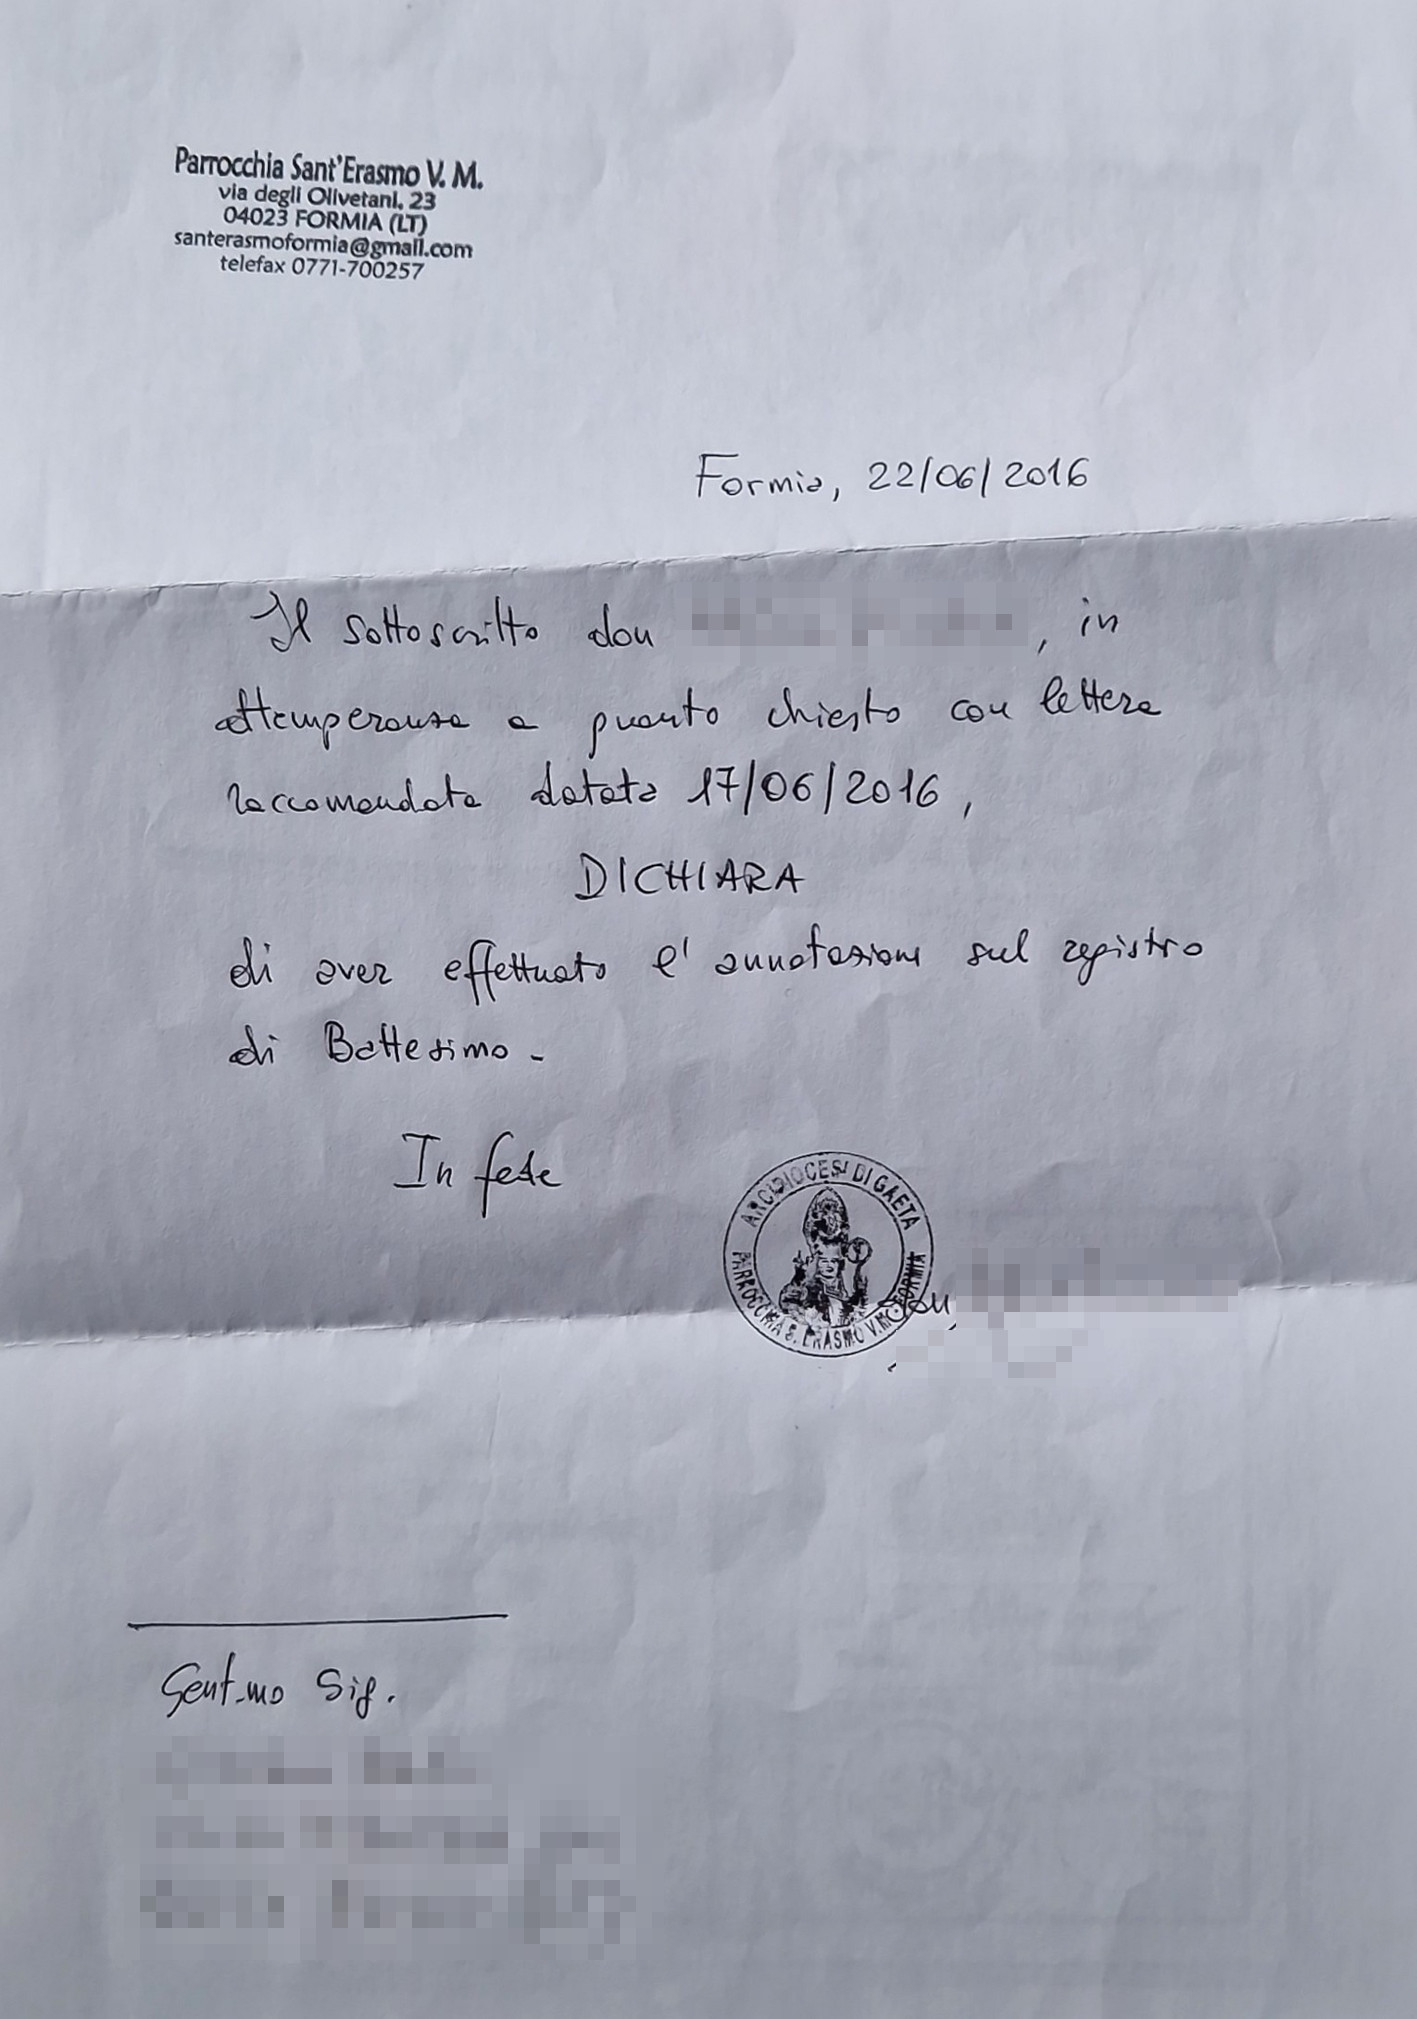 Parrocchia Sant'Erasmo V. M.
via degli Olivetani, 23
04023 FORMIA (LT)
santerasmoformia@gmail.com
telefax 0771-700257
Formia, 22/06/2016
Il sottoscritto don , in
attemperanza a quanto chiesto con lettera
raccomandata datata 17/06/2016,
DICHIARA
di aver effettuato l'annotazione sul registro
di Battesimo.
In fede
ARCIDIOCESI DI GAETA
PARROCCHIA S. ERASMO V.M. FORMIA
don
Gent.mo Sig.